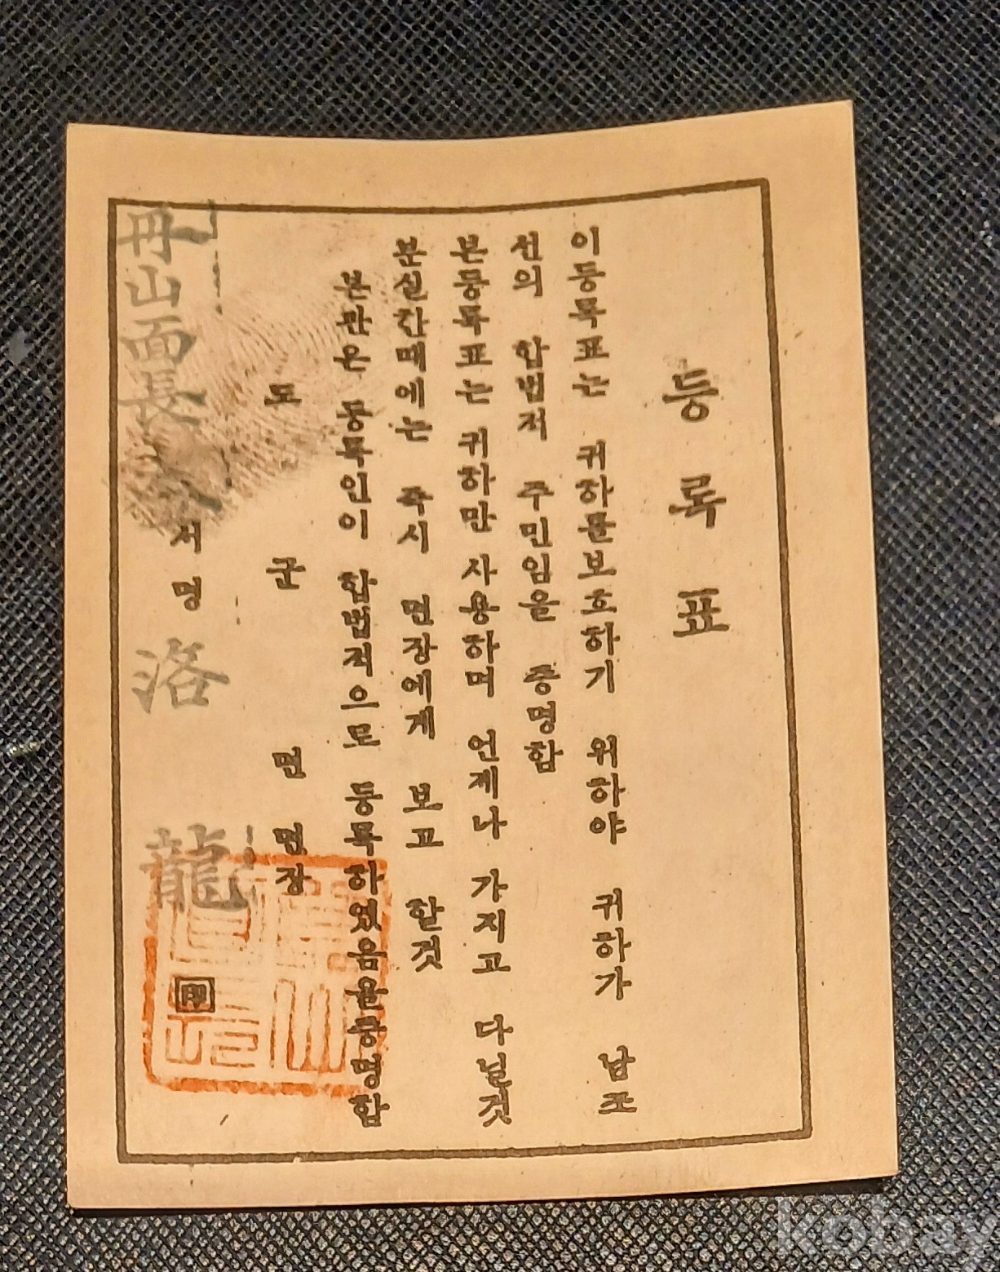 등록표
이등록표는 귀하를보호하기 위하야 귀하가 남조
선의 합법적 주민임을 증명함
본등록표는 귀하만 사용하며 언제나 가지고 다닐것
분실한때에는 즉시 면장에게 보고 할것
본관은 등록인이 합법적으로 등록하였음을증명함
도 군 면 면장
서명
丹山面長 洛 龍
印
kobay